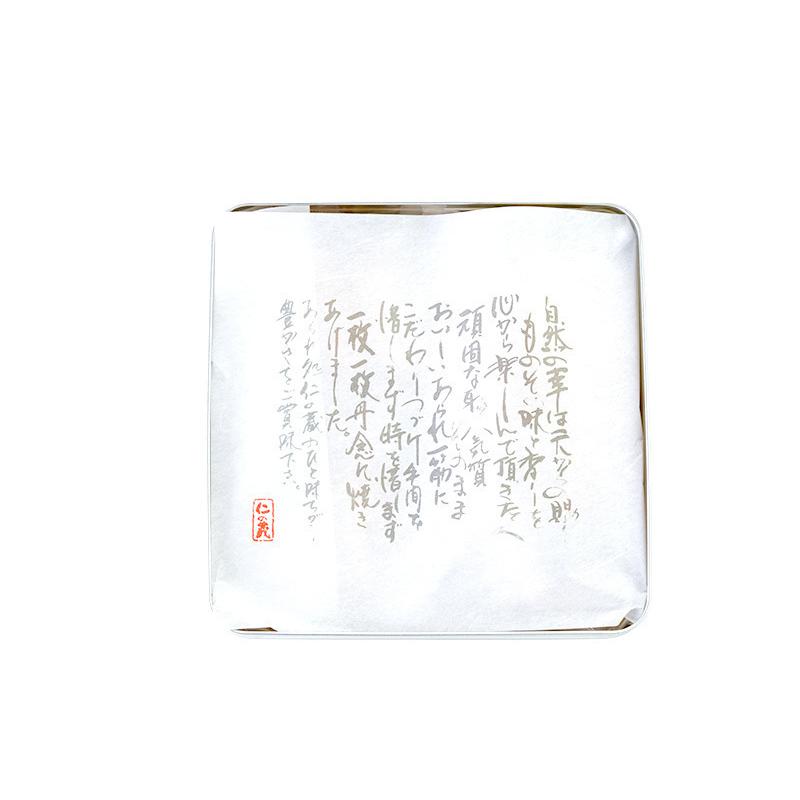 自然の幸は天からの賜
ものその味と香りを
心から楽しんで頂きたく
頑固な私 気質 そのまま
おいしいあられ一筋に
こだわりつづけ手間を
惜しまず時を惜しまず
一枚一枚丹念に焼き
あげました。
あられ処仁の蔵のひと時
豊かさをご賞味下さい。
仁の蔵